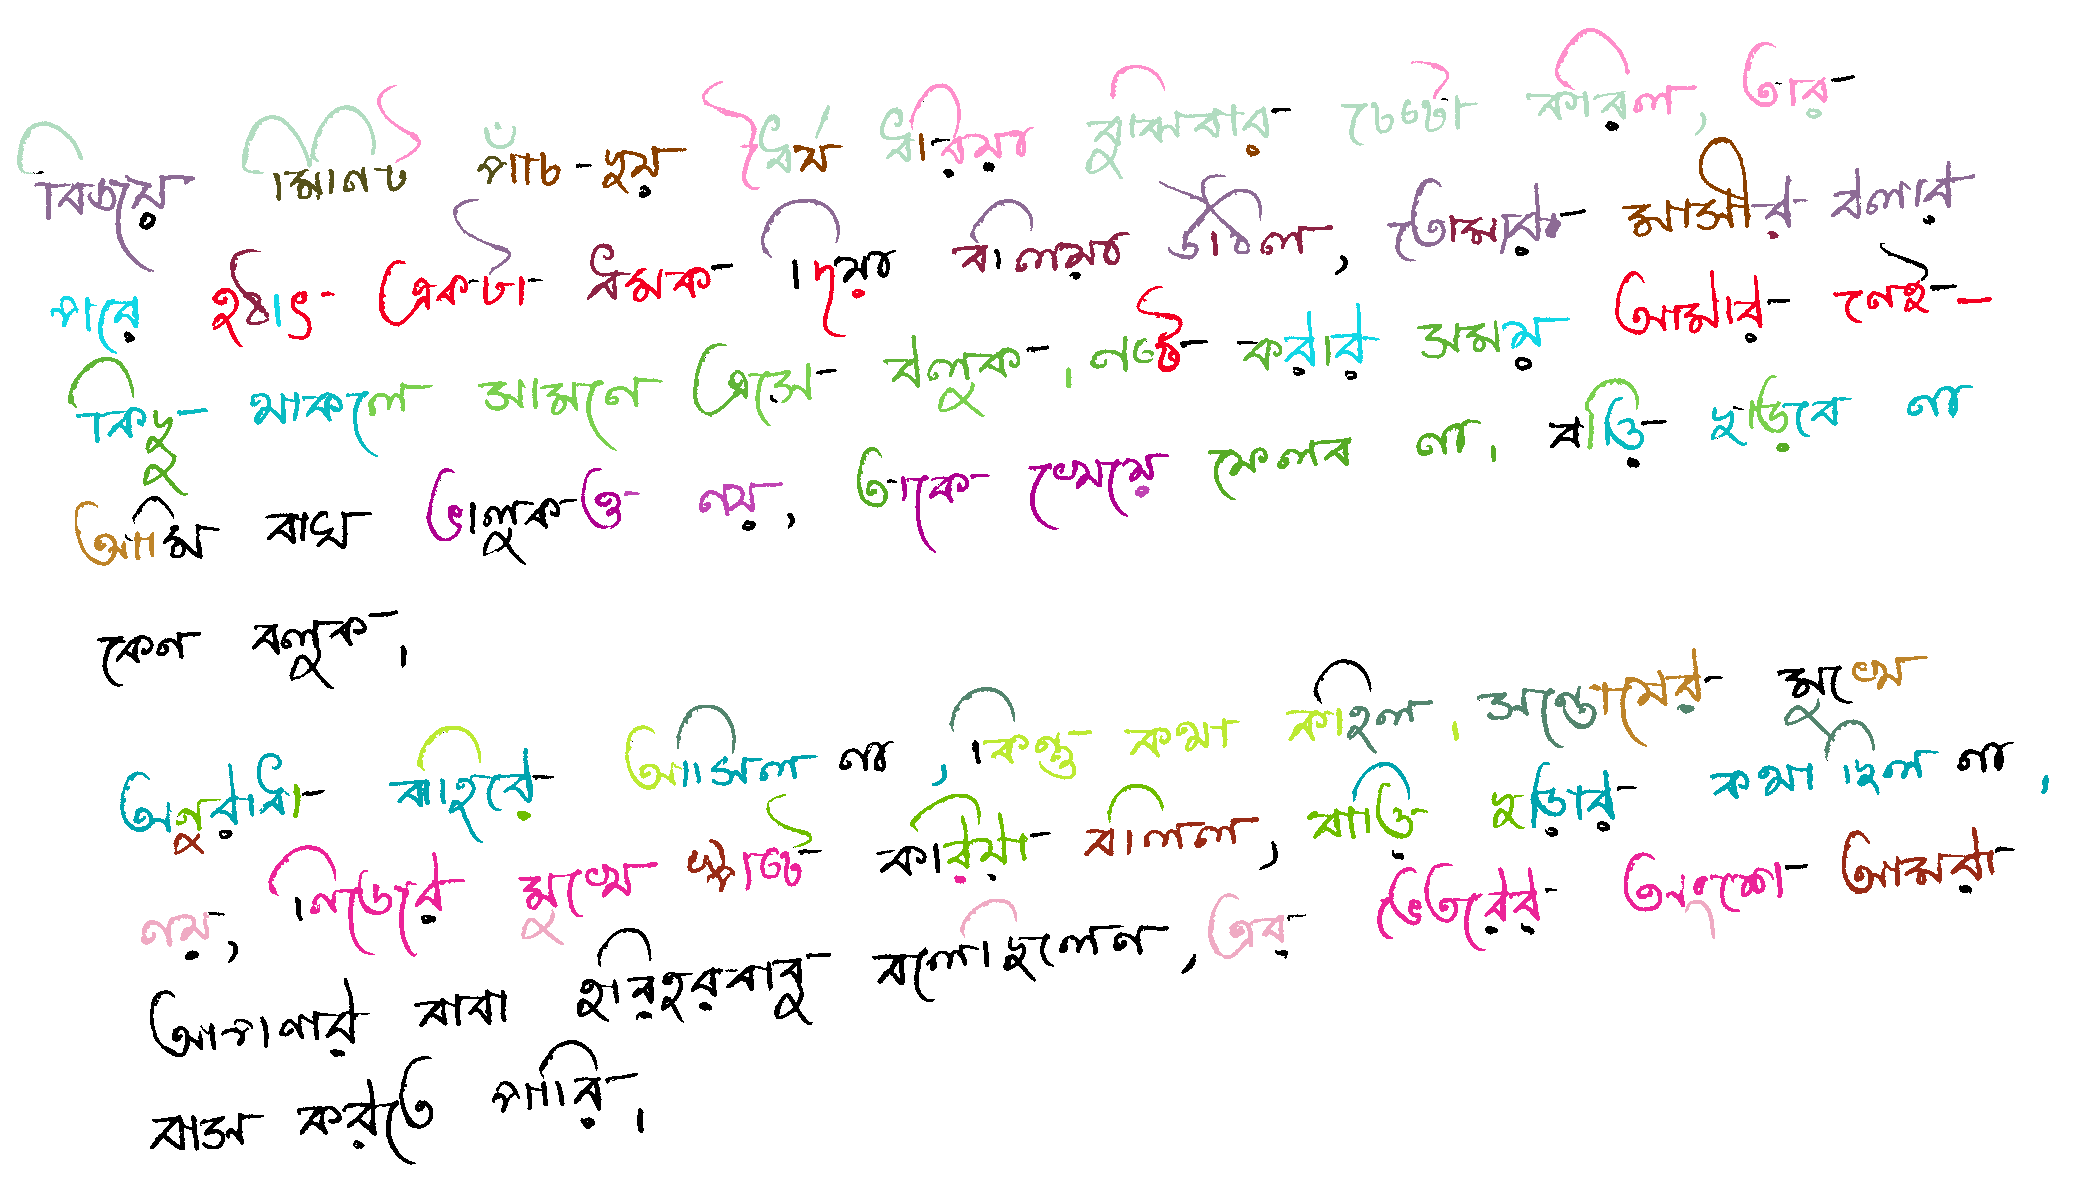 বিজয় মিনিট পাঁচ-ছয় ধৈর্য ধরিয়া বুঝিবার চেষ্টা করিল, তার
পরে হঠাৎ একটা ধমক দিয়া বলিয়া উঠিল, তোমার মাসীর বলার
কিছু থাকলে সামনে এসে বলুক, নষ্ট করার সময় আমার নেই-
আমি বাঘ ভালুকও নয়, তাকে খেয়ে ফেলব না। বাড়ি ছাড়বে না
কেন বলুক।
অনুরাধা বাহিরে আসিল না, কিন্তু কথা কহিল। সন্তোষের মুখে
নয়, নিজের মুখে স্পষ্ট করিয়া বলিল, বাড়ি ছাড়ার কথা ছিল না,
আপনার বাবা হরিহরবাবু বলেছিলেন, এর ভেতরের অংশে আমরা
বাস করতে পারি।